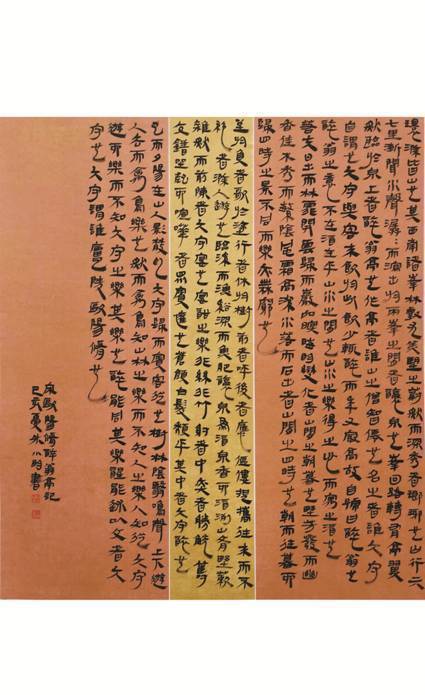 環滁皆山也其西南諸峯林壑尤美望之蔚然而深秀者瑯琊也山行六
七里漸聞水聲潺潺而瀉出于兩峯之間者釀泉也峯回路轉有亭翼
然臨於泉上者醉翁亭也作亭者誰山之僧智僊也名之者誰太守
自謂也太守與客來飲于此飲少輒醉而年又最高故自號曰醉翁也
醉翁之意不在酒在乎山水之間也山水之樂得之心而寓之酒也
若夫日出而林霏開雲歸而巖穴暝晦明變化者山間之朝暮也野芳發而幽
香佳木秀而繁陰風霜高潔水落而石出者山間之四時也朝而往暮而
歸四時之景不同而樂亦無窮也
至於負者歌於塗行者休於樹前者呼後者應傴僂提攜往來而不
絕者滁人遊也臨溪而漁溪深而魚肥釀泉為酒泉香而酒洌山肴野蔌
雜然而前陳者太守宴也宴酣之樂非絲非竹射者中弈者勝觥籌
交錯坐起而諠譁者衆賓懽也蒼顏白髮頹乎其中者太守醉也
已而夕陽在山人影散亂太守歸而賓客從也樹林陰翳鳴聲上下遊
人去而禽鳥樂也然而禽鳥知山林之樂而不知人之樂人知從太守
遊而樂而不知太守之樂其樂也醉能同其樂醒能述以文者太
守也太守謂誰廬陵歐陽脩也
歐陽脩醉翁亭記
己亥夏 書